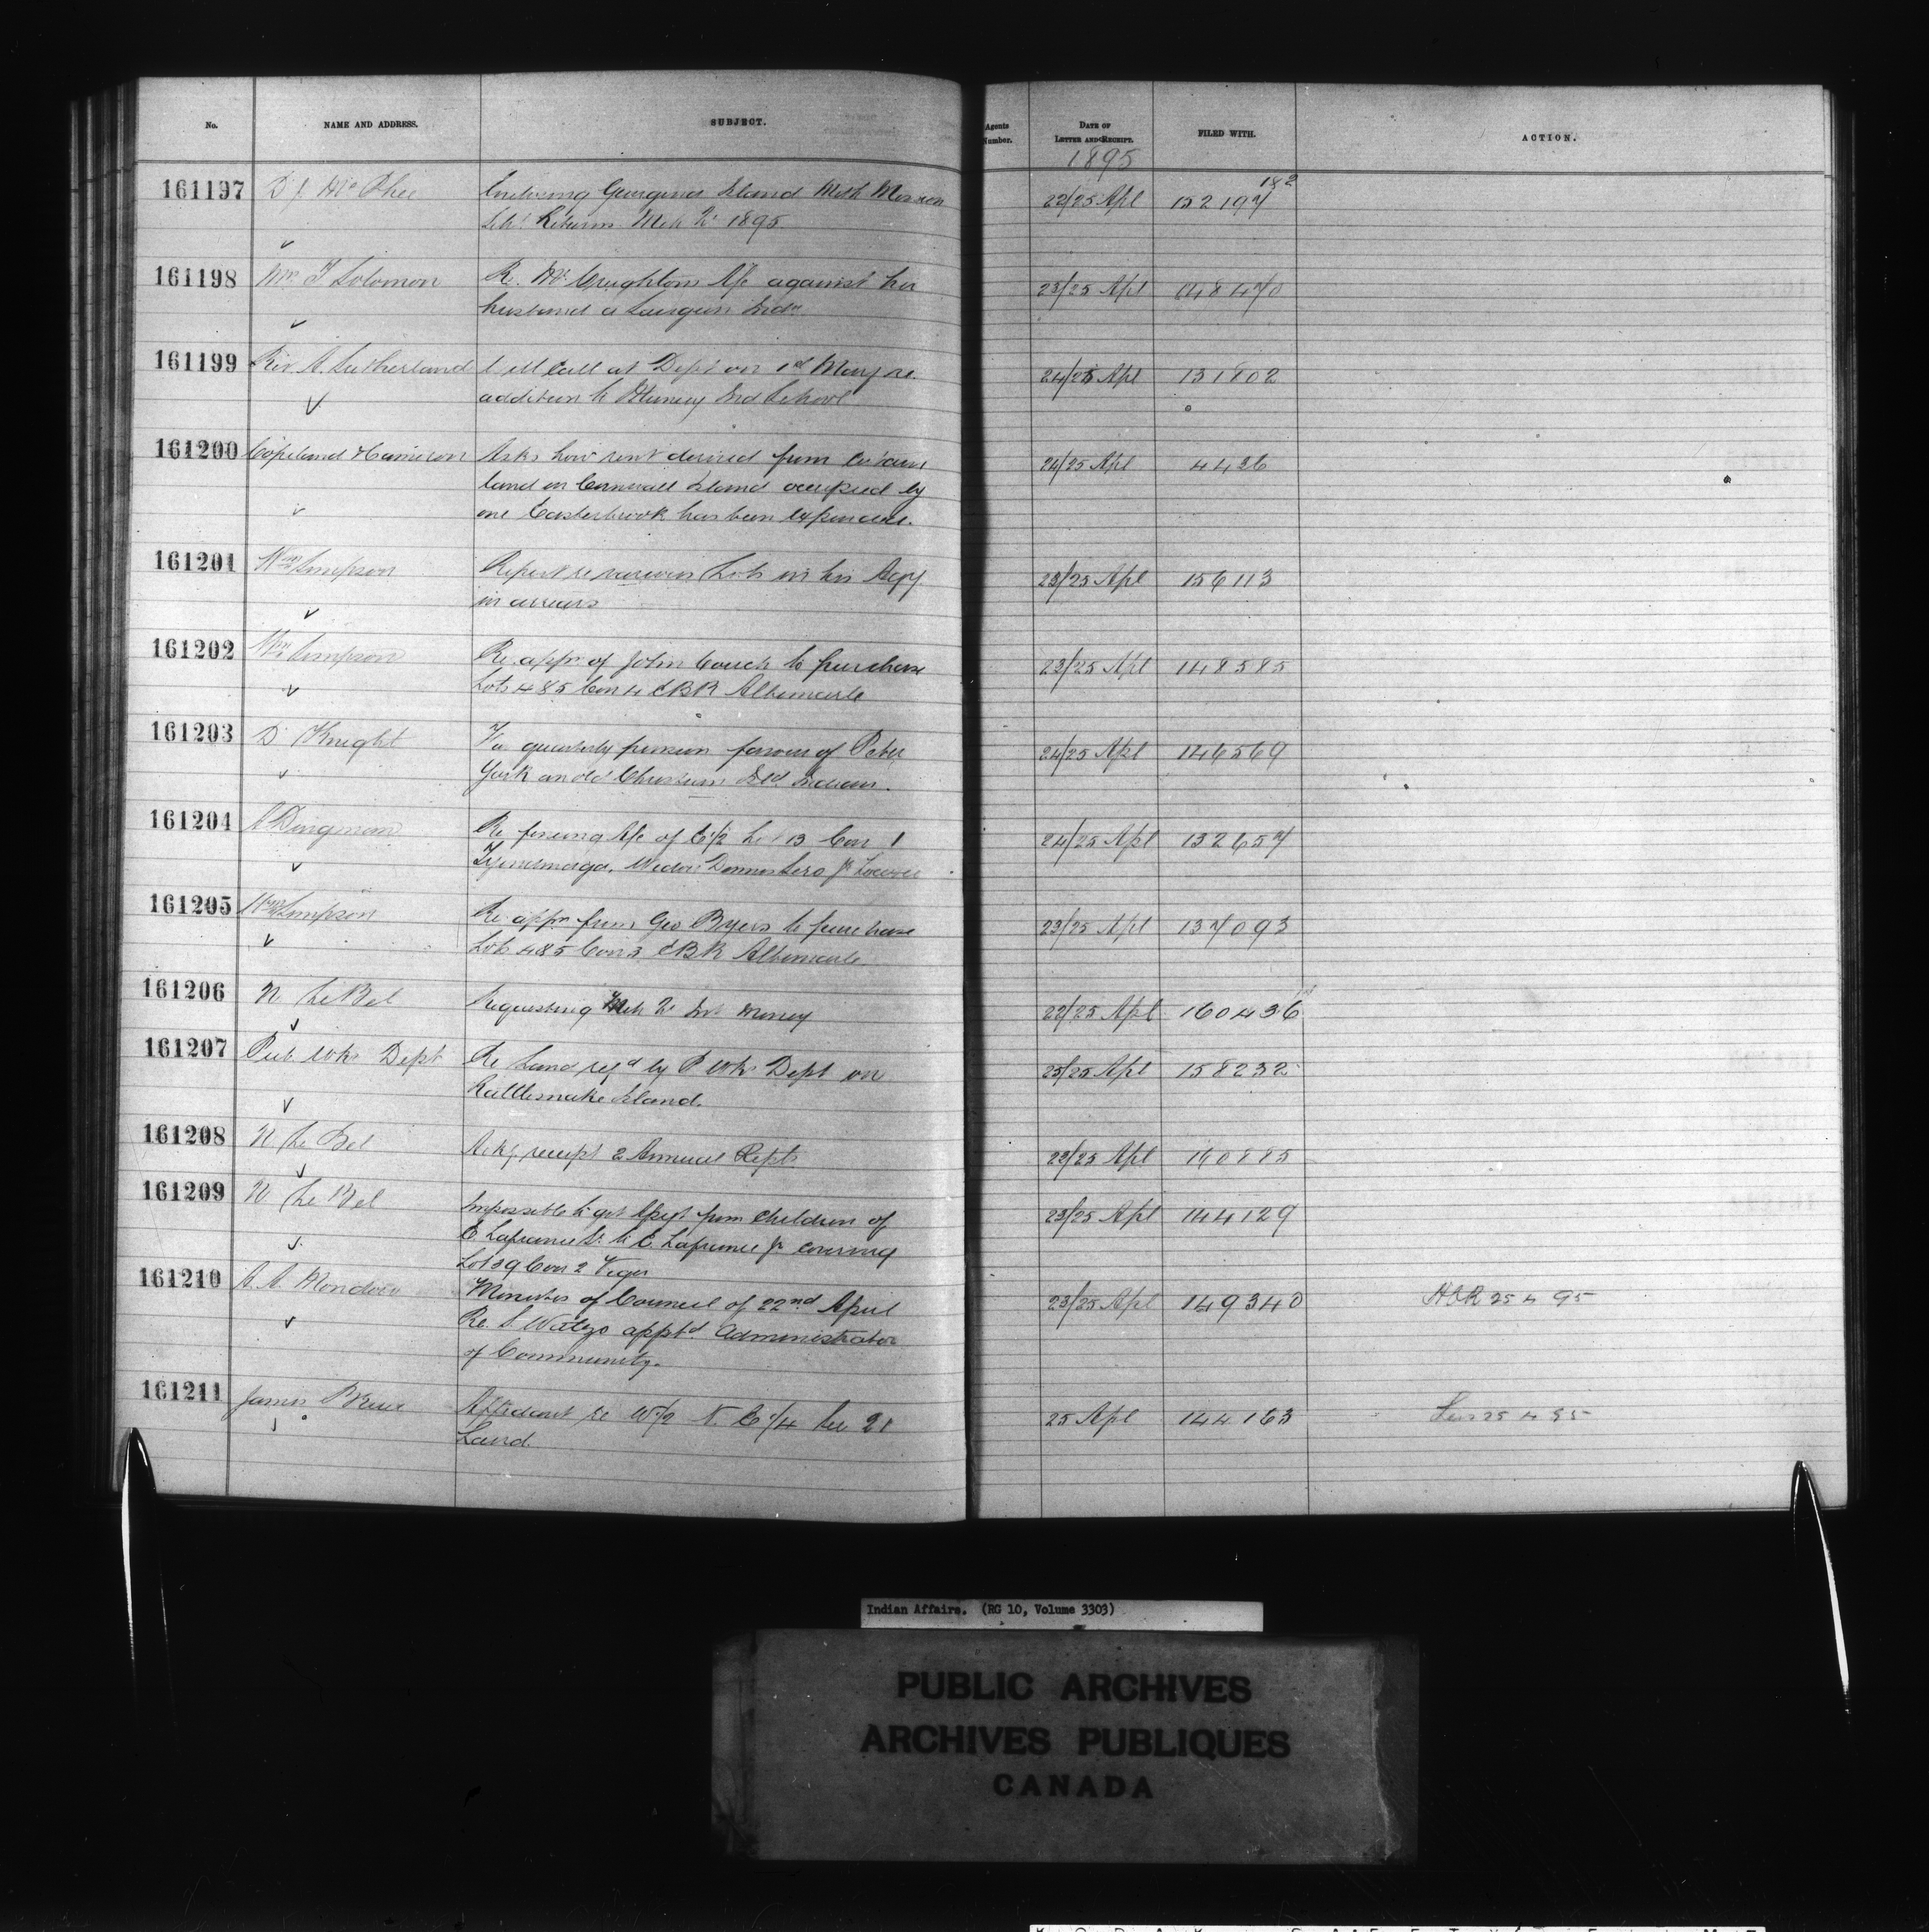 No. NAME AND ADDRESS. SUBJECT. Agents Number. DATE OF LETTER AND RECEIPT. FILED WITH. ACTION.
1895
161197 D. J. McPhee Enclosing Georgina Island Meth Mission 22/25 Apl 152197 182
Schl Returns Mch Qr 1895
161198 Mrs. J Solomon Re. Mr Creighton's a/c against her 23/25 Apl 148470
husband a Saugeen Indn
161199 Rev A. Sutherland Will Call at Dept on 1st May re. 24/25 Apl 131802
addition to Muncey Ind School
161200 Copeland & Cameron Asks how rent derived from certain 24/25 Apl 4436
land on Cornwall Island occupied by
one Easterbrook has been expended.
161201 Wm Simpson Report re various Lots in his Agcy 23/25 Apl 156113
in arrears
161202 Wm Simpson Re. appn of John Couch to purchase 23/25 Apl 148585
Lots 4 & 5 Con 4 EBR Albemarle
161203 D Knight Re quarterly pension favour of Peter 24/25 Apl 146569
York an old Christian Isld. Indian.
161204 A Dingman Re fencing a/c of E 1/2 Lot 13 Con 1 24/25 Apl 132657
Tyendinaga.
161205 Wm Simpson Re. appn from Geo Byers to purchase 23/25 Apl 137093
Lots 4 & 5 Con 3 EBR Albemarle
161206 N LeBel Requesting Mch Qr Int Money 22/25 Apl 160436
161207 Pub Wks Dept Re Land reqd by P Wks Dept on 25/25 Apl 158232
Rattlesnake Island.
161208 N Le Bel Ackg receipt 2 Annual Repts 22/25 Apl 160885
161209 N Le Bel Impossible to get Assgt from children of 23/25 Apl 144129
E. Lafrance Sr. to E. Lafrance Jr covering
Lot 39 Con 2 Viger
161210 A. A. Mondou Minutes of Council of 22nd April 23/25 Apl 149340 25 4 95
Re. S Watso apptd Administrator
of Community.
161211 James Bruce Affidavit re W 1/2 N. E 1/4 Sec 21 25 Apl 144163 25 4 95
Laird.
Indian Affairs. (RG 10, Volume 3303)
PUBLIC ARCHIVES
ARCHIVES PUBLIQUES
CANADA